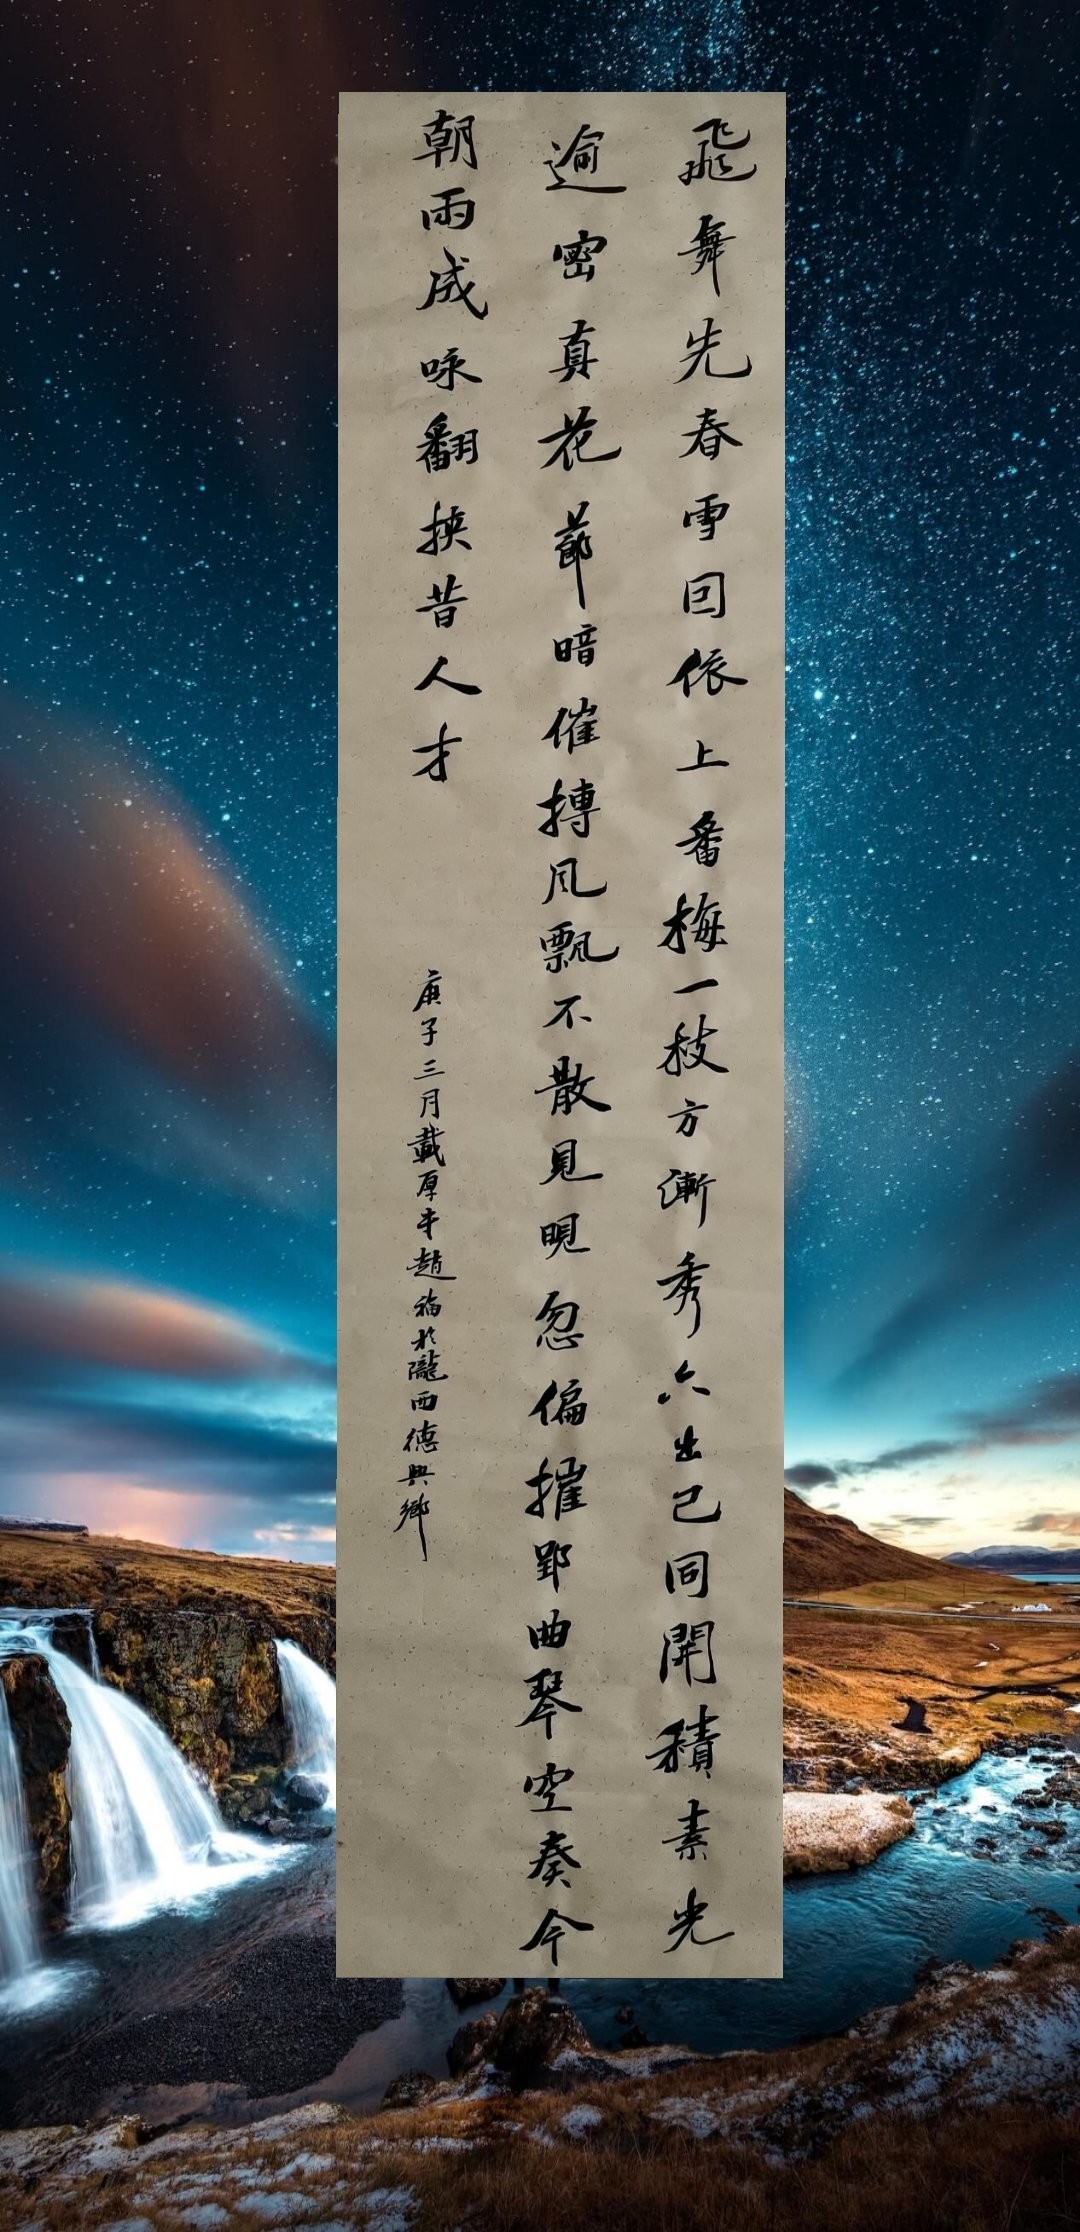 飛舞先春雪因依上番梅一枝方漸秀六出已同開積素光
逾密真花節暗催搏風飄不散見晛忽偏摧郢曲琴空奏今
朝雨成咏翻挾昔人才
庚子三月載厚牛趙福於隴西德興鄉